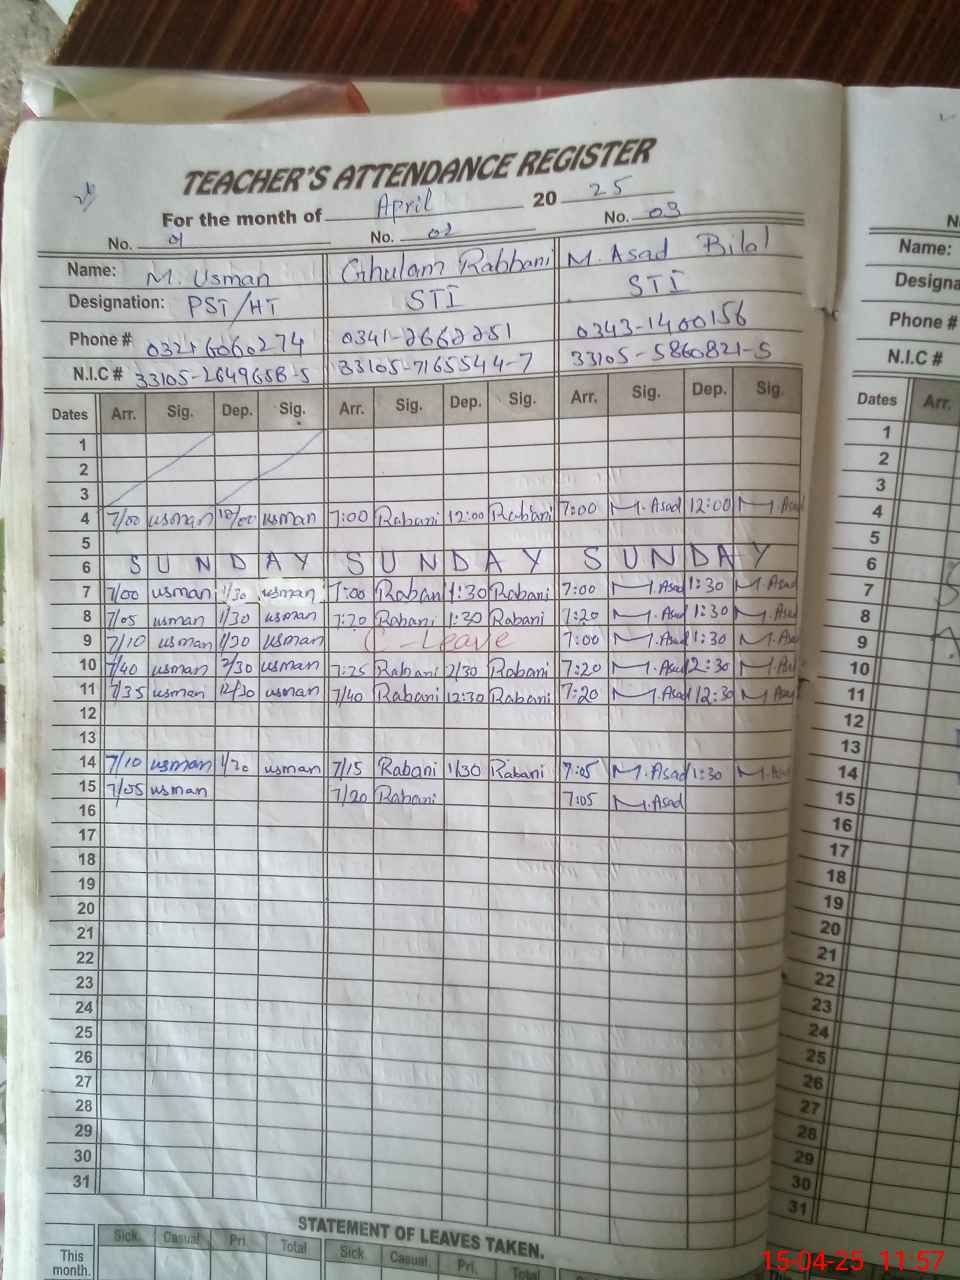 TEACHER'S ATTENDANCE REGISTER
For the month of April 20 25
No. 01 No. 02 No. 03
Name: M. Usman Ghulam Rabbani M. Asad Bilal
Designation: PST/HT STI STI
Phone # 0341-2662251 0343-1400156
N.I.C # 33105-2649658-5 33105-7165544-7 33105-5860821-5
Dates Arr. Sig. Dep. Sig. Arr. Sig. Dep. Sig. Arr. Sig. Dep. Sig.
1
2
3
4 7/00 usman 12/00 usman 7:00 Rabani 12:00 Rabani 7:00 M.Asad 12:00 M.Asad
5
6 SUNDAY SUNDAY SUNDAY
7 7/00 usman 1/30 usman 7:00 Rabani 1:30 Rabani 7:00 M.Asad 1:30 M.Asad
8 7/05 usman 1/30 usman 7:20 Rabani 1:30 Rabani 7:20 M.Asad 1:30 M.Asad
9 7/10 usman 1/30 usman C-Leave 7:00 M.Asad 1:30 M.Asad
10 7/40 usman usman 7:25 Rabani Rabani 7:20 M.Asad 12:30 M.Asad
11 7/35 usman 12/30 usman 7/40 Rabani 12:30 Rabani 7:20 M.Asad 12:30 M.Asad
12
13
14 7/10 usman 1/30 usman 7/15 Rabani 1/30 Rabani 7:05 M.Asad 1:30 M.Asad
15 7/05 usman 7/20 Rabani 7:05 M.Asad
16
17
18
19
20
21
22
23
24
25
26
27
28
29
30
31
STATEMENT OF LEAVES TAKEN.
Sick Casual Pri. Total Sick Casual Pri. Total
This month.
Name:
Designa
Phone #
N.I.C #
Dates Arr.
1
2
3
4
5
6
7
8
9
10
11
12
13
14
15
16
17
18
19
20
21
22
23
24
25
26
27
28
29
30
31
15-04-25 11:57